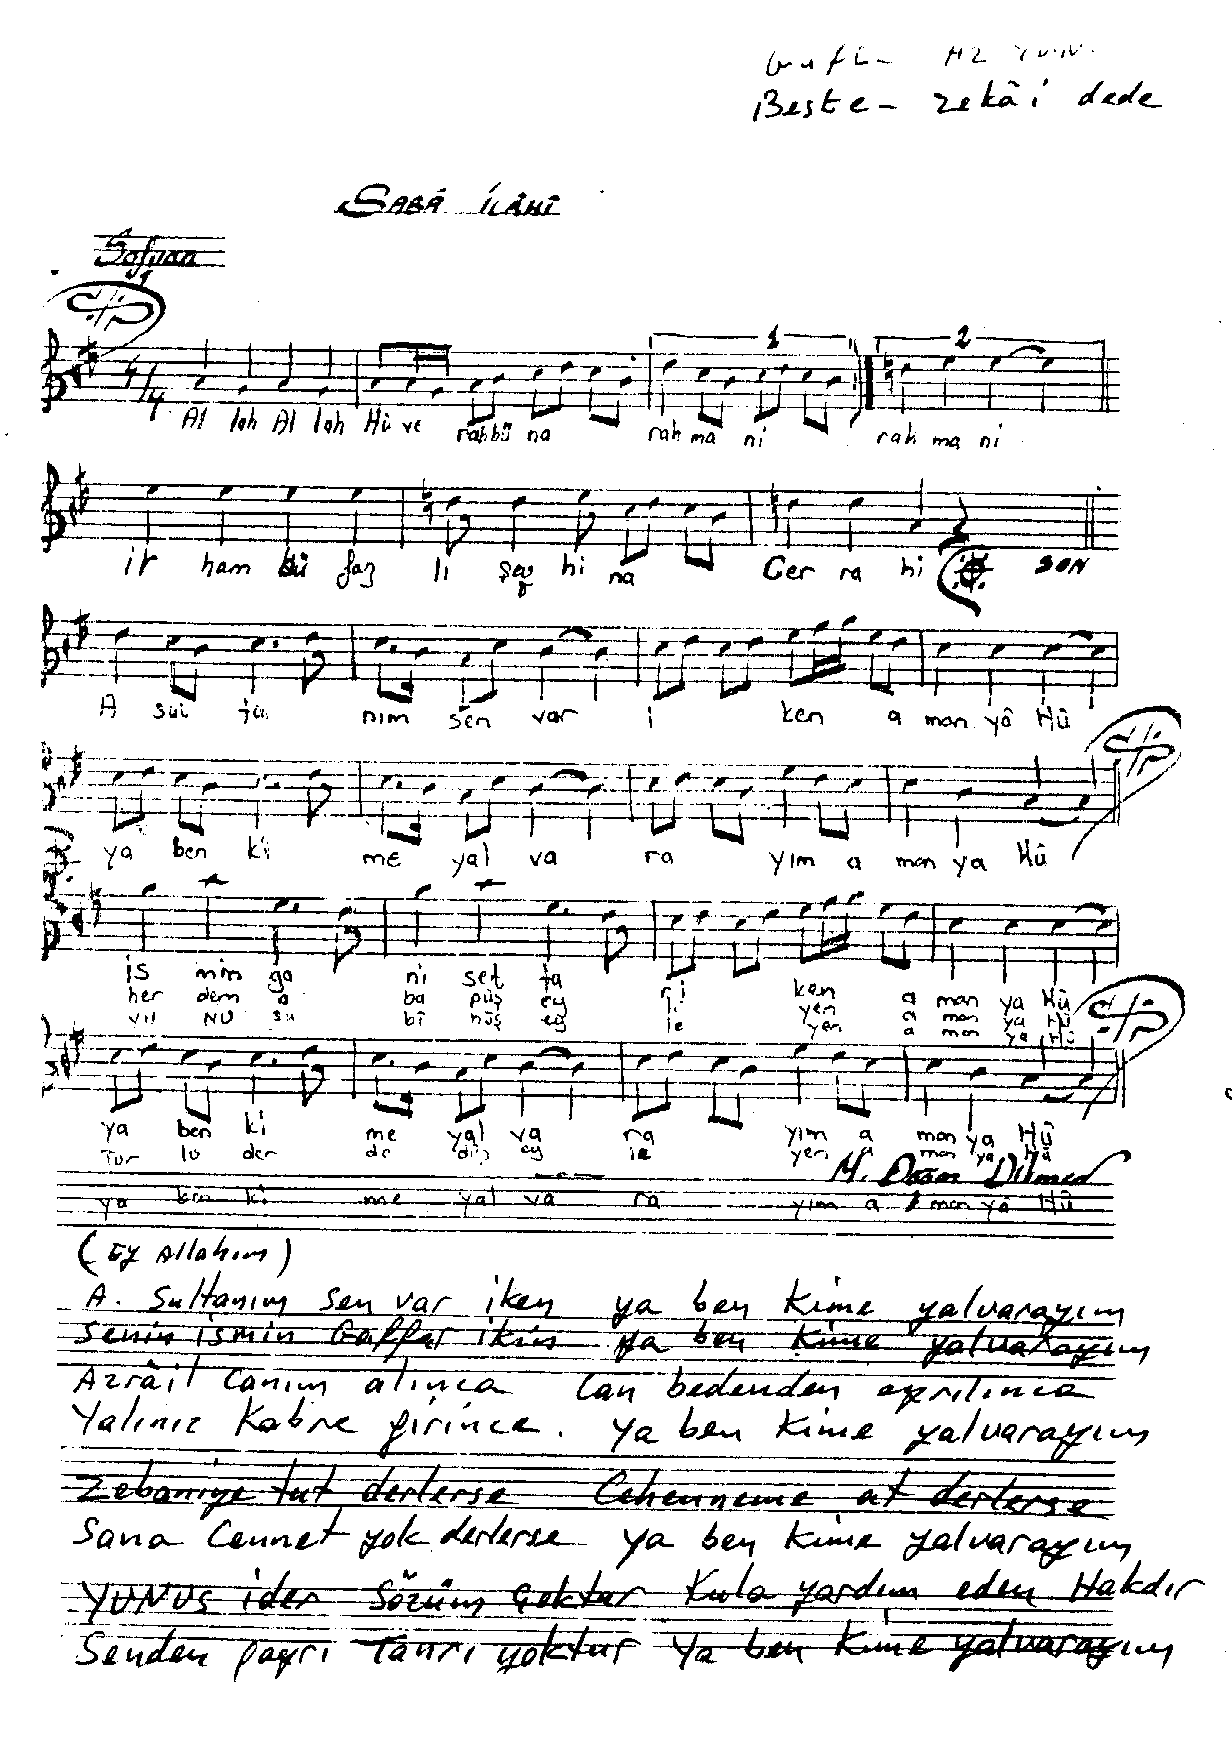 Beste - zekâi dede
SABÂ İLÂHÎ
Sofyan
1 2
4/4
Al lah Al lah Hû ve rab bû na rah ma ni rah ma ni
ir ham bû faz li şey hi na Ger ra hi SON
A sul ta nım sen var i ken a man yâ Hû
ya ben ki me yal va ra yım a man ya Hû
is min ga ni set ta ri ken a man ya Hû
her dem a ba pûş ey yen a man ya Hû
bî hûş ey le yen a man ya Hû
ya ben ki me yal va ra yım a man ya Hû
Tur lu der de düş ey le yen a man ya Hû
M. Doğan Dikmen
ya ben ki me yal va ra yım a man yâ Hû
(Ey Allahım)
A. Sultanım sen var iken ya ben kime yalvarayım
Senin ismin Gaffar iken ya ben kime yalvarayım
Azrâil Canım alınca Can bedenden ayrılınca
Yalınız Kabre girince. ya ben kime yalvarayım
Zebaniye tut derlerse Cehenneme at derlerse
Sana Cennet yok derlerse ya ben kime yalvarayım
YUNUS ider Sözüm Çoktur Kula yardım eden Hakdır
Senden gayri Tanrı yoktur Ya ben kime yalvarayım